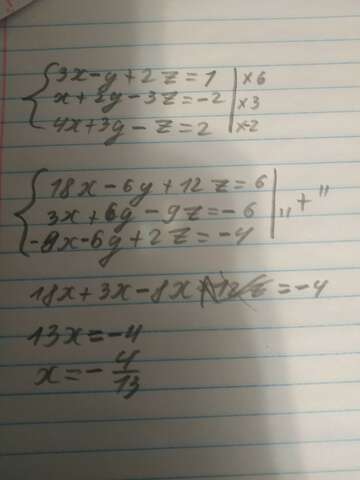 3x-y+2z=1 | ×6
x+2y-3z=-2 | ×3
4x+3y-z=2 | ×-2
18x-6y+12z=6
3x+6y-9z=-6 | "+"
-8x-6y+2z=-4
18x+3x-8x+12z=-4
13x=-4
x=-4/13